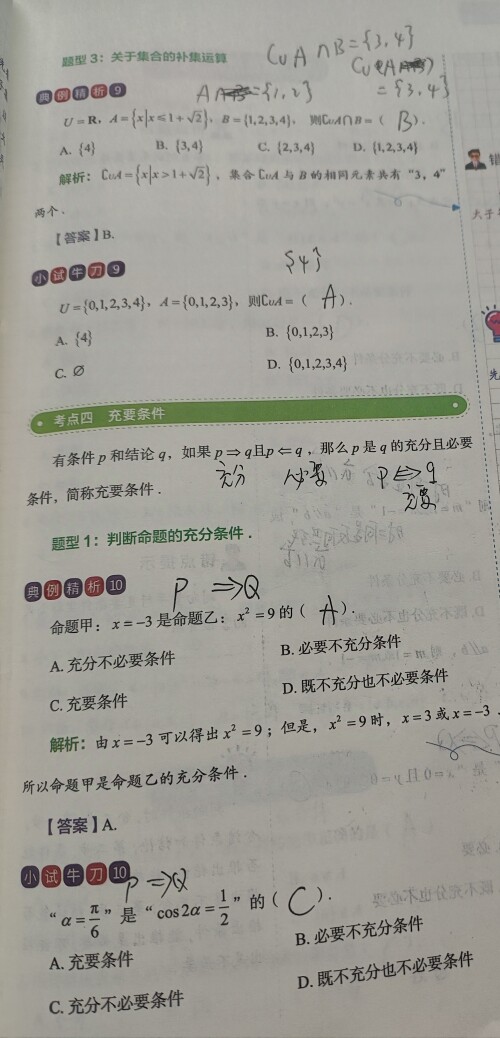 题型3：关于集合的补集运算
C∪A∩B={3,4}
典例精析9
A∩ ={1,2}
={3,4}
U=R，A={x|x≤1+√2}，B={1,2,3,4}，则C∪A∩B=（B）.
A. {4} B. {3,4} C. {2,3,4} D. {1,2,3,4}
解析：C∪A={x|x>1+√2}，集合C∪A与B的相同元素共有“3，4”
两个.
【答案】B.
{4}
小试牛刀9
U={0,1,2,3,4}，A={0,1,2,3}，则C∪A=（A）.
A. {4} B. {0,1,2,3}
C. ∅ D. {0,1,2,3,4}
考点四 充要条件
有条件p和结论q，如果p⇒q且p⇐q，那么p是q的充分且必要
充分 必要 P⇔q
条件，简称充要条件.
充要
题型1：判断命题的充分条件.
典例精析10
P⇒Q
命题甲：x=−3是命题乙：x²=9的（A）.
A. 充分不必要条件 B. 必要不充分条件
C. 充要条件 D. 既不充分也不必要条件
解析：由x=−3可以得出x²=9；但是，x²=9时，x=3或x=−3.
所以命题甲是命题乙的充分条件.
【答案】A.
小试牛刀10
P⇒Q
“α=π/6”是“cos2α=1/2”的（C）.
A. 充要条件 B. 必要不充分条件
C. 充分不必要条件 D. 既不充分也不必要条件